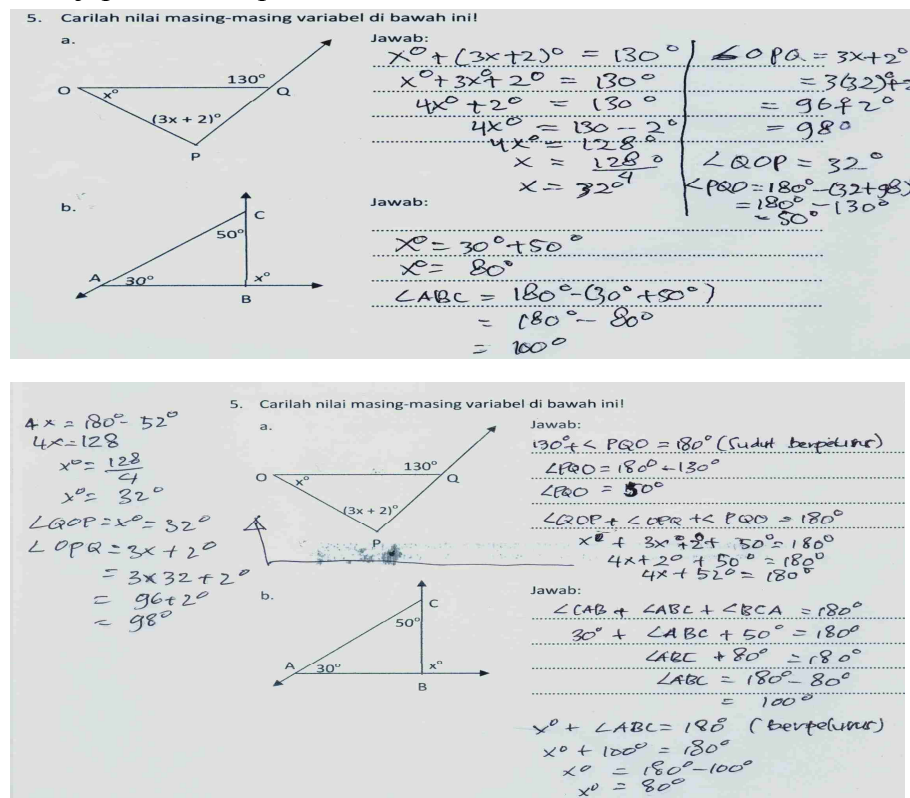 5. Carilah nilai masing-masing variabel di bawah ini!
a.
O
x°
130°
Q
(3x + 2)°
P
Jawab:
x° + (3x+2)° = 130°
x° + 3x° + 2° = 130°
4x° + 2° = 130°
4x° = 130 - 2°
4x° = 128°
x = 128°/4
x = 32°
∠OPQ = 3x+2°
= 3(32)°+2
= 96+2°
= 98°
∠QOP = 32°
∠PQO = 180° - (32+98)
= 180° - 130°
= 50°
b.
C
50°
A
30°
x°
B
Jawab:
x° = 30° + 50°
x° = 80°
∠ABC = 180° - (30° + 50°)
= 180° - 80°
= 100°
4x = 180° - 52°
4x = 128
x° = 128/4
x° = 32°
∠QOP = x° = 32°
∠OPQ = 3x + 2°
= 3x32 + 2°
= 96 + 2°
= 98°
5. Carilah nilai masing-masing variabel di bawah ini!
a.
O
x°
130°
Q
(3x + 2)°
P
Jawab:
130° + ∠PQO = 180° (Sudut berpelurus)
∠PQO = 180° - 130°
∠PQO = 50°
∠QOP + ∠OPQ + ∠PQO = 180°
x° + 3x° + 2° + 50° = 180°
4x + 2° + 50° = 180°
4x + 52° = 180°
b.
C
50°
A
30°
x°
B
Jawab:
∠CAB + ∠ABC + ∠BCA = 180°
30° + ∠ABC + 50° = 180°
∠ABC + 80° = 180°
∠ABC = 180° - 80°
= 100°
x° + ∠ABC = 180° (berpelurus)
x° + 100° = 180°
x° = 180° - 100°
x° = 80°